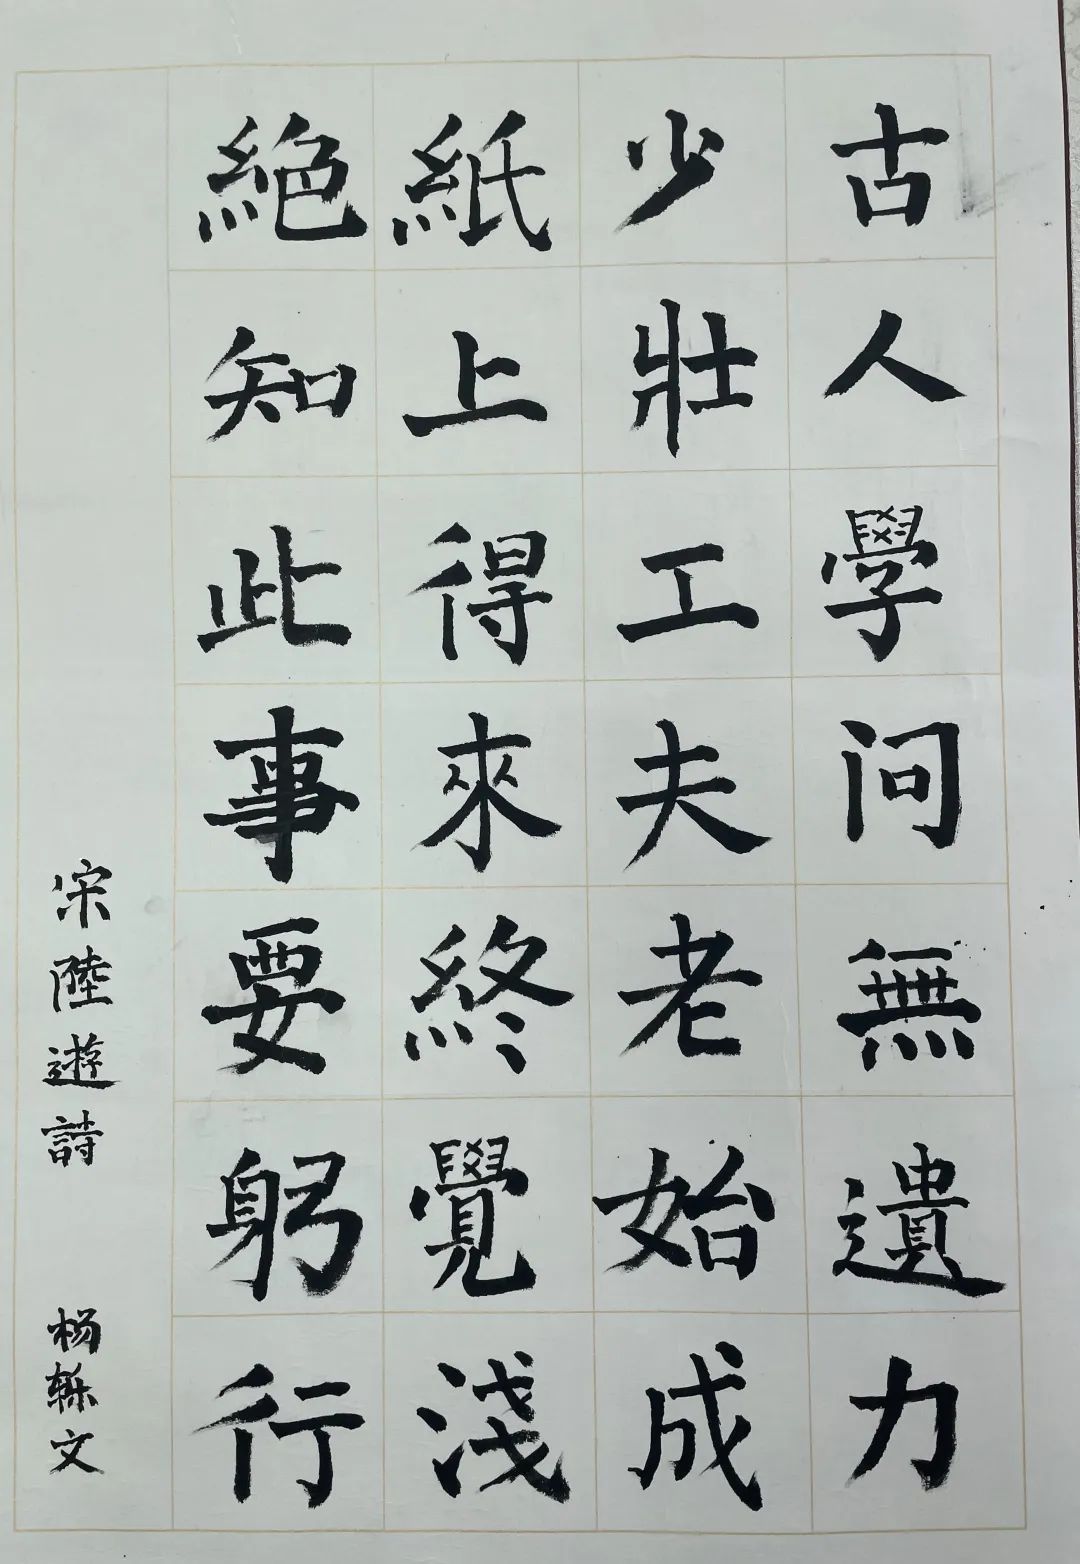 古人學问無遺力
少壯工夫老始成
紙上得來終覺淺
絕知此事要躬行
宋陸遊詩
杨轹文